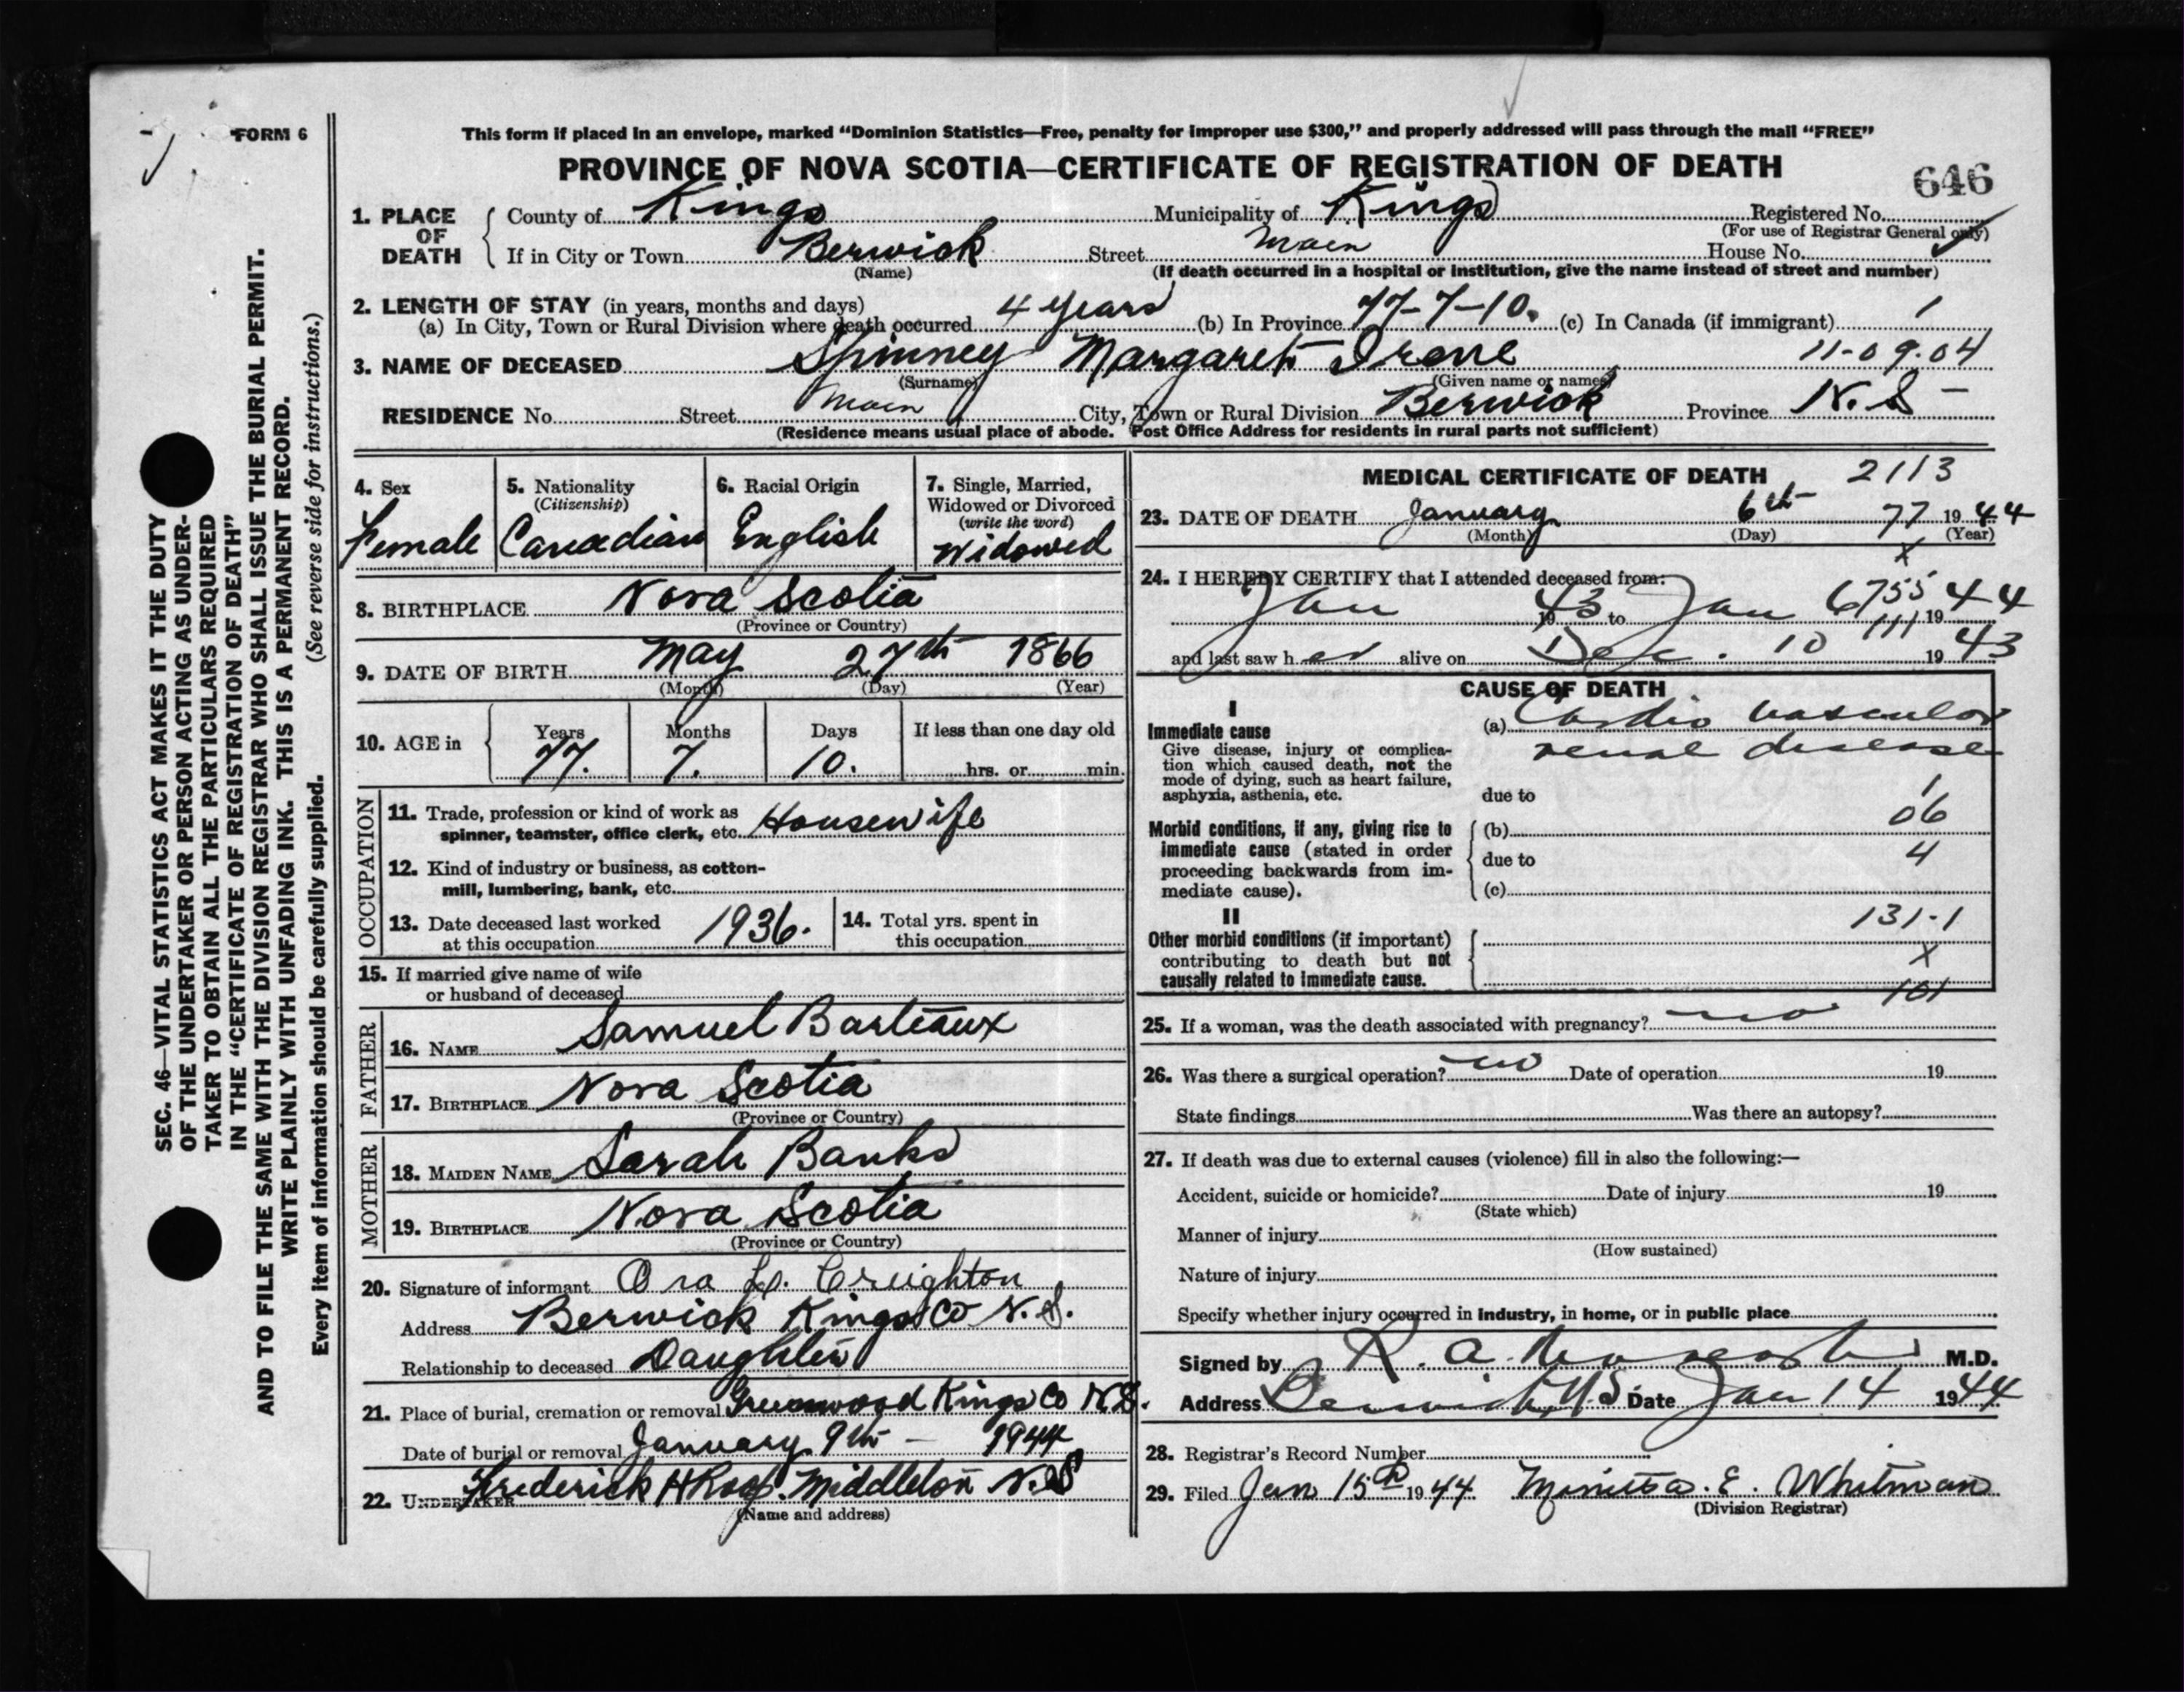 FORM 6
This form if placed in an envelope, marked “Dominion Statistics—Free, penalty for improper use $300,” and properly addressed will pass through the mail “FREE”
PROVINCE OF NOVA SCOTIA—CERTIFICATE OF REGISTRATION OF DEATH
646
1. PLACE OF DEATH County of Kings Municipality of Kings Registered No.
(For use of Registrar General only)
If in City or Town Berwick Street Main House No.
(Name) (If death occurred in a hospital or institution, give the name instead of street and number)
2. LENGTH OF STAY (in years, months and days)
(a) In City, Town or Rural Division where death occurred 4 years (b) In Province 77-7-10. (c) In Canada (if immigrant) 1
3. NAME OF DECEASED Spinney Margaret Irene 11-09.04
(Surname) (Given name or names)
RESIDENCE No. Street Main City, Town or Rural Division Berwick Province N.S
(Residence means usual place of abode. Post Office Address for residents in rural parts not sufficient)
4. Sex
Female
5. Nationality
(Citizenship)
Canadian
6. Racial Origin
English
7. Single, Married,
Widowed or Divorced
(write the word)
Widowed
8. BIRTHPLACE Nova Scotia
(Province or Country)
9. DATE OF BIRTH May 27th 1866
(Month) (Day) (Year)
10. AGE in Years Months Days If less than one day old
77. 7. 10. hrs. or min.
OCCUPATION
11. Trade, profession or kind of work as
spinner, teamster, office clerk, etc. Housewife
12. Kind of industry or business, as cotton-
mill, lumbering, bank, etc.
13. Date deceased last worked
at this occupation 1936.
14. Total yrs. spent in
this occupation
15. If married give name of wife
or husband of deceased
FATHER
16. NAME Samuel Barteaux
17. BIRTHPLACE Nova Scotia
(Province or Country)
MOTHER
18. MAIDEN NAME Sarah Banks
19. BIRTHPLACE Nova Scotia
(Province or Country)
20. Signature of informant Ora L. Creighton
Address Berwick Kings Co N.S.
Relationship to deceased Daughter
21. Place of burial, cremation or removal Greenwood Kings Co N.S.
Date of burial or removal January 9th - 1944
22. UNDERTAKER Frederick H Roop. Middleton N.S
(Name and address)
MEDICAL CERTIFICATE OF DEATH 2113
23. DATE OF DEATH January 6th 77 1944
(Month) (Day) (Year)
X
24. I HEREBY CERTIFY that I attended deceased from:
Jan 1943 to Jan 6 755 1944
111
and last saw her alive on Dec. 10 1943
CAUSE OF DEATH
I
Immediate cause
Give disease, injury or complica-
tion which caused death, not the
mode of dying, such as heart failure,
asphyxia, asthenia, etc.
(a) Cardio vascular
renal disease
due to 1
06
Morbid conditions, if any, giving rise to
immediate cause (stated in order
proceeding backwards from im-
mediate cause).
(b)
due to 4
(c)
II
131-1
Other morbid conditions (if important)
contributing to death but not
causally related to immediate cause.
X
101
25. If a woman, was the death associated with pregnancy? no
26. Was there a surgical operation? no Date of operation 19
State findings Was there an autopsy?
27. If death was due to external causes (violence) fill in also the following:—
Accident, suicide or homicide? Date of injury 19
(State which)
Manner of injury
(How sustained)
Nature of injury
Specify whether injury occurred in industry, in home, or in public place
Signed by R. A. M.D.
Address Berwick, N.S. Date Jan 14 1944
28. Registrar's Record Number
29. Filed Jan 15th 1944 E. Whitman
(Division Registrar)
SEC. 46—VITAL STATISTICS ACT MAKES IT THE DUTY
OF THE UNDERTAKER OR PERSON ACTING AS UNDER-
TAKER TO OBTAIN ALL THE PARTICULARS REQUIRED
IN THE “CERTIFICATE OF REGISTRATION OF DEATH”
AND TO FILE THE SAME WITH THE DIVISION REGISTRAR WHO SHALL ISSUE THE BURIAL PERMIT.
WRITE PLAINLY WITH UNFADING INK. THIS IS A PERMANENT RECORD.
Every item of information should be carefully supplied. (See reverse side for instructions.)